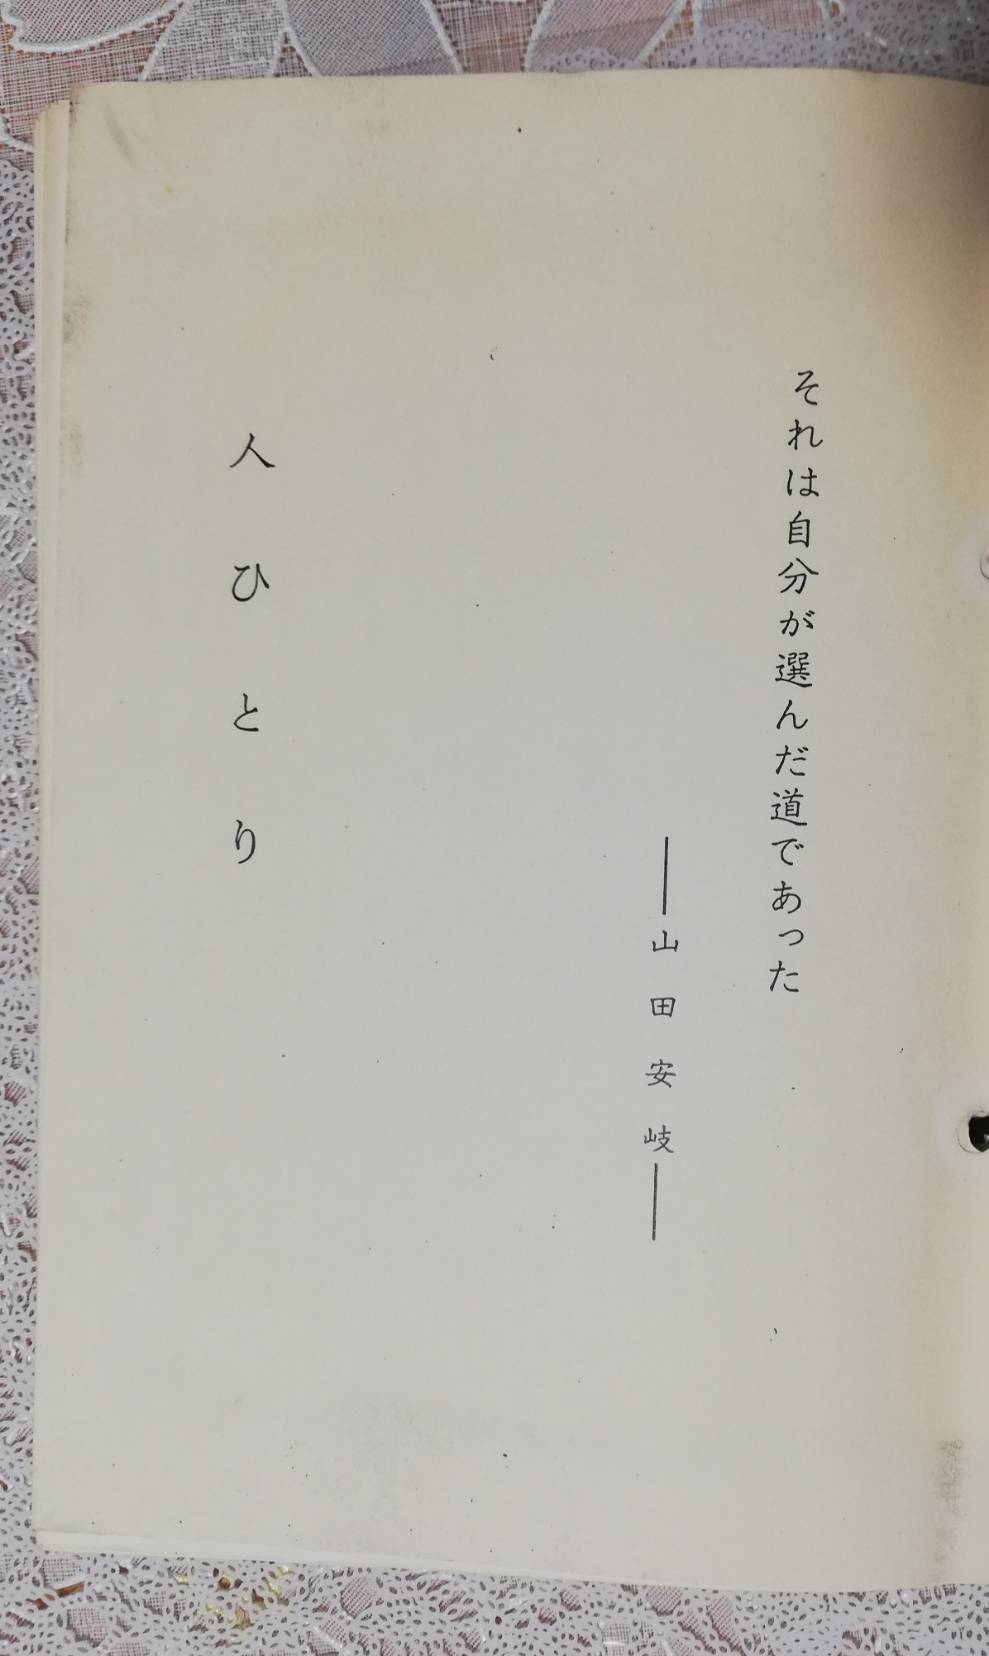 それは自分が選んだ道であった
――山田安岐――
人ひとり